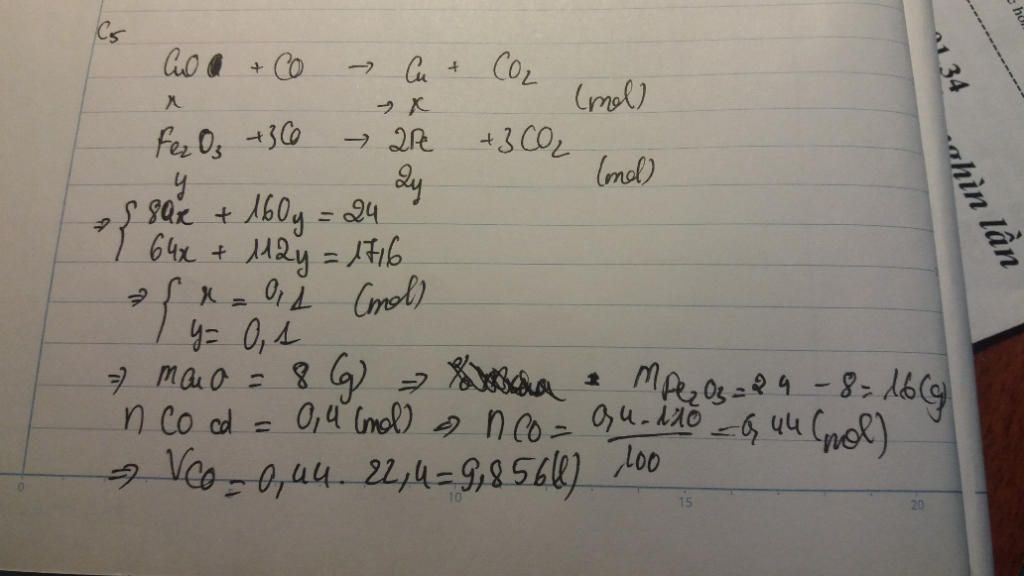 C5
CuO + CO → Cu + CO2
x → x (mol)
Fe2O3 + 3CO → 2Fe + 3CO2
y 2y (mol)
⇒ { 80x + 160y = 24
64x + 112y = 17,6
⇒ { x = 0,1 (mol)
y = 0,1
⇒ mCuO = 8 (g) ⇒ mFe2O3 = 24 - 8 = 16 (g)
nCO cd = 0,4 (mol) ⇒ nCO = 0,4 . 110 / 100 = 0,44 (mol)
⇒ VCO = 0,44 . 22,4 = 9,856 (l)
0 10 15 20
01 34
nghìn lần